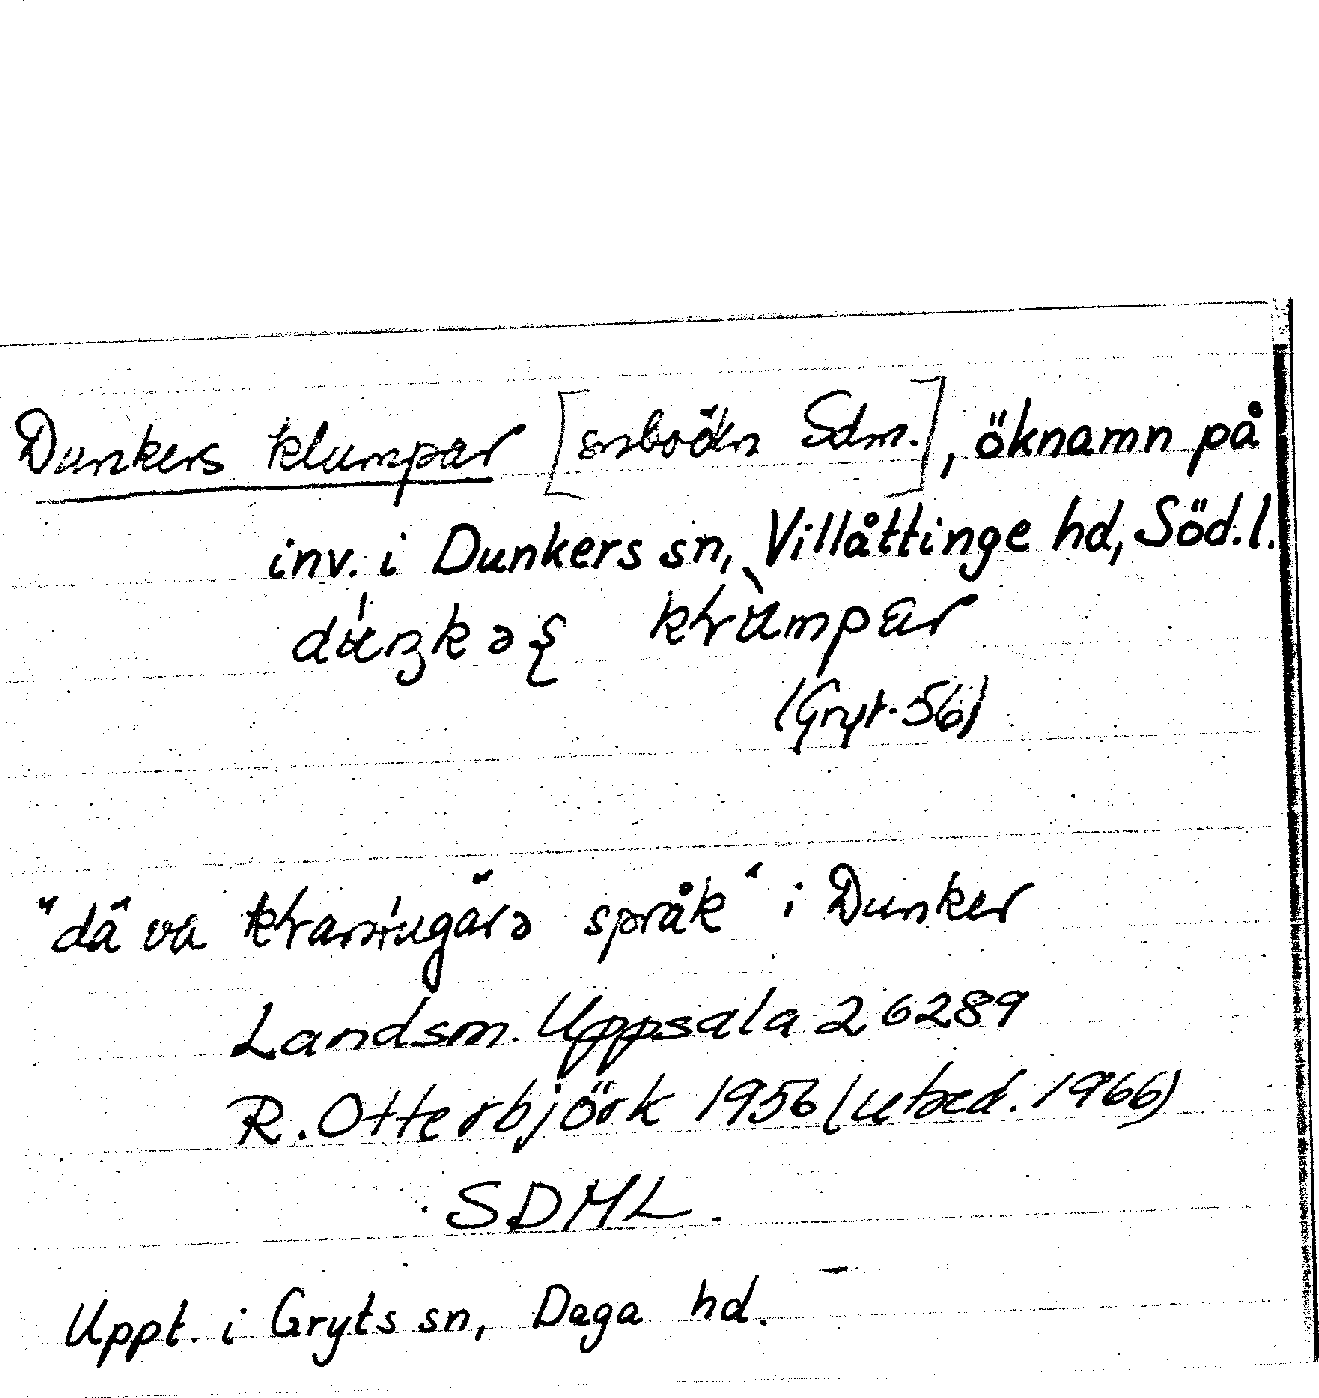 Dunkers klumpar [snboökn Sdm.], öknamn på
inv. i Dunkers sn, Villåttinge hd, Söd.l.
(Gryt. 56)
"dä va språk" i Dunker
Landsm. Uppsala 26289
R. Otterbjörk 1956 (utbed. 1966)
SDML.
Uppt. i Gryts sn, Daga hd.